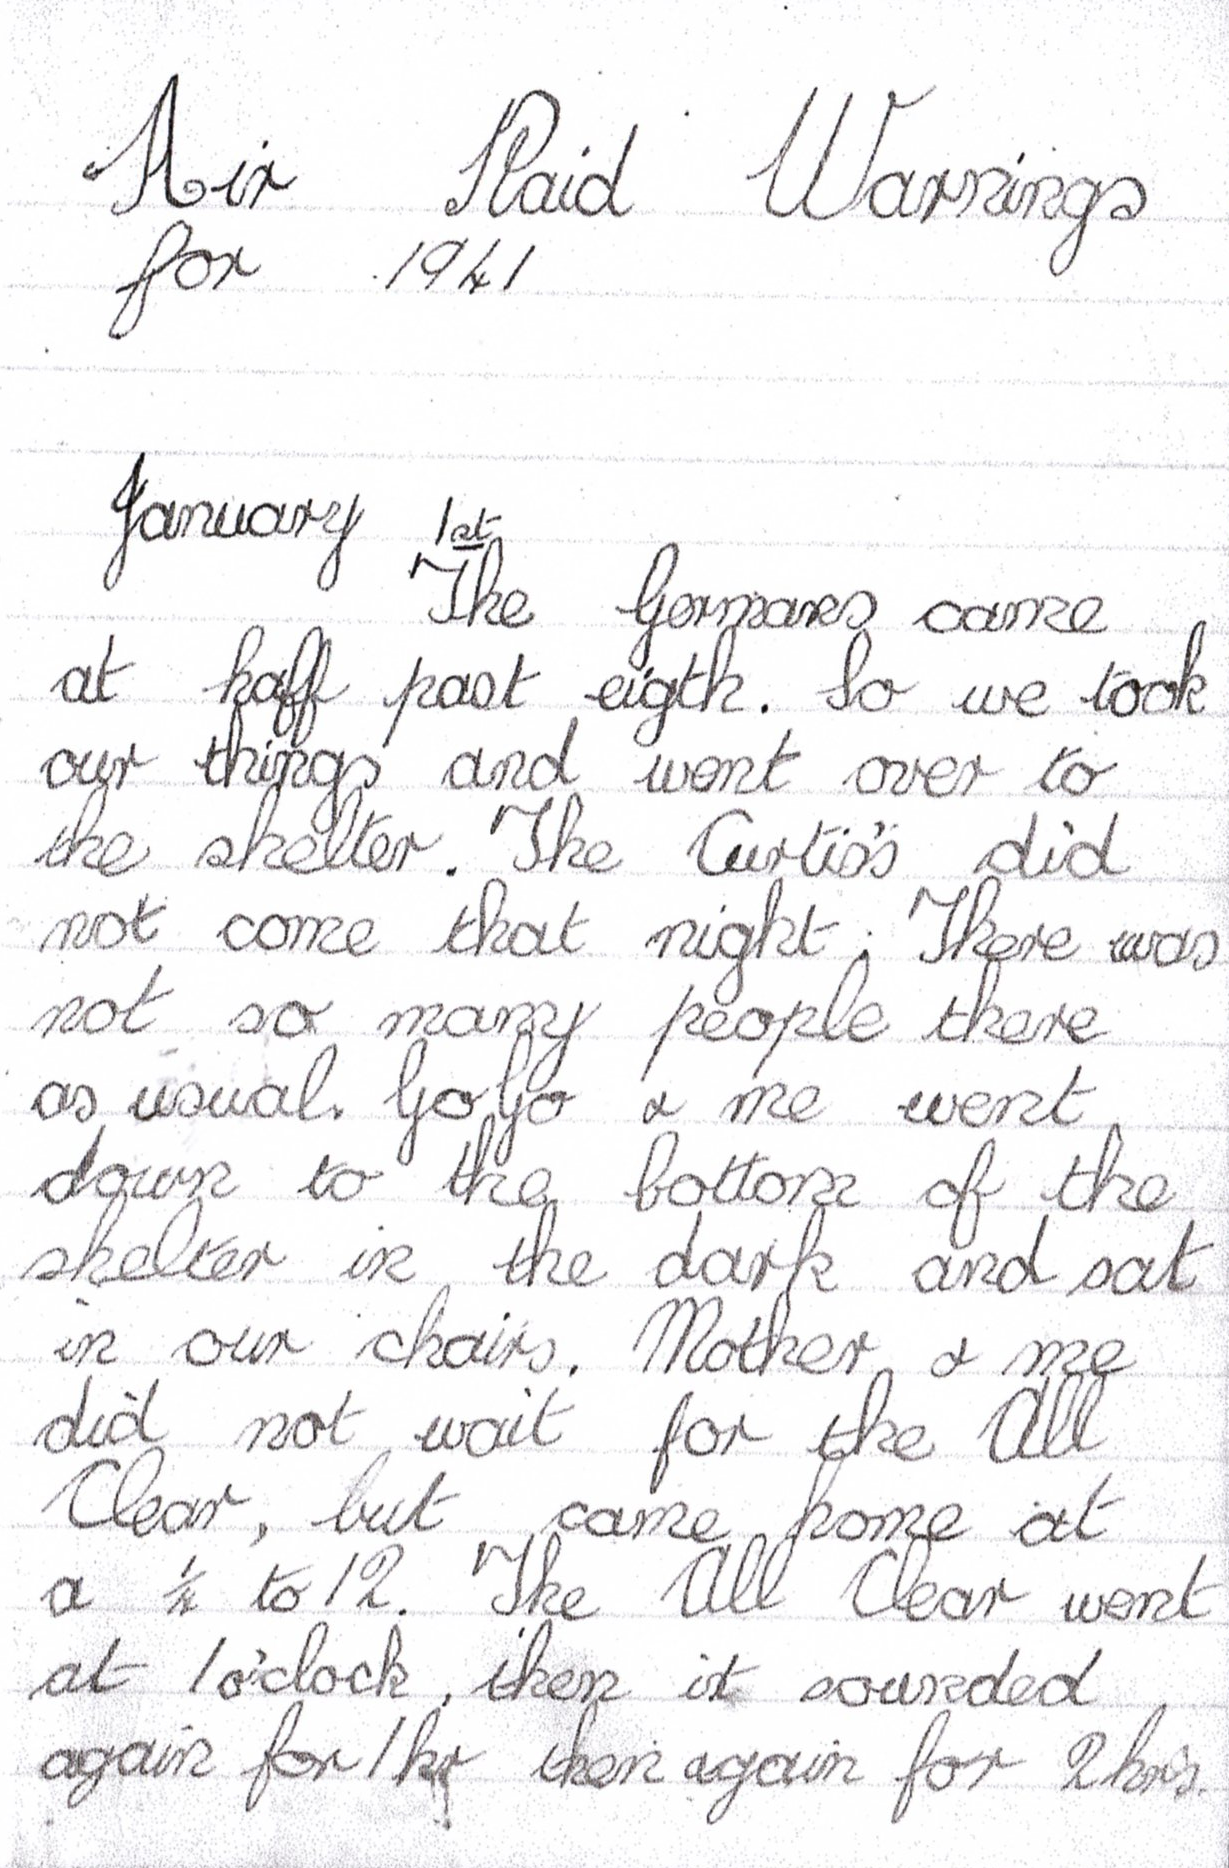 Air Raid Warnings
for 1941
January 1st
The Germans came
at haff past eigth. So we took
our things and went over to
the shelter. The Curtis's did
not come that night. There was
not so many people there
as usual. Go Go & me went
down to the bottom of the
shelter in the dark and sat
in our chairs. Mother & me
did not wait for the All
Clear, but came home at
a ¼ to 12. The All Clear went
at 1 o'clock, then it sounded
again for 1 hr then again for 2 hrs.